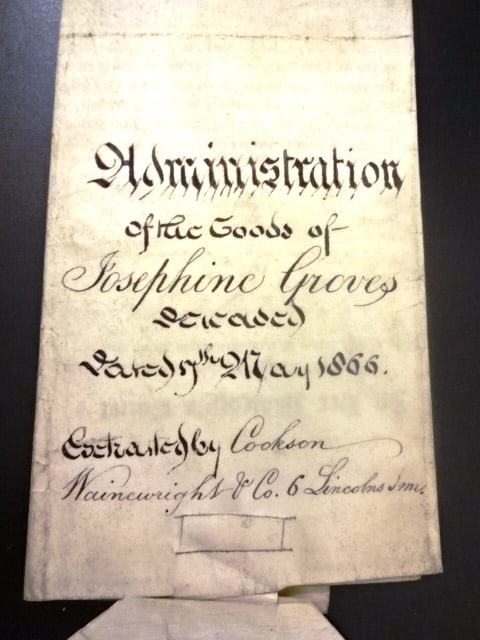 Administration
of the Goods of
Josephine Groves
Deceased
Dated 7th May 1866.
Extracted by Cookson
Wainewright & Co. 6 Lincolns Inn.